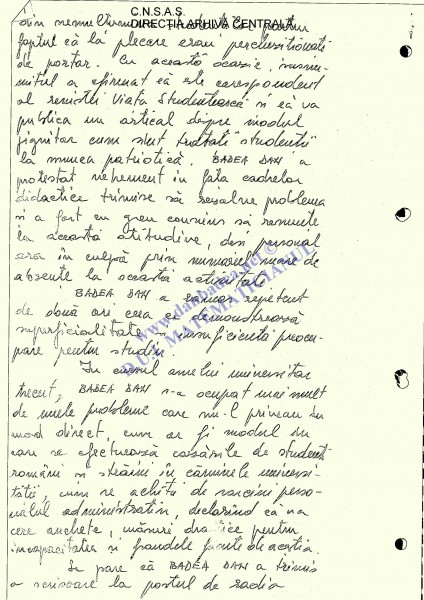 C.N.S.A.S.
DIRECȚIA ARHIVĂ CENTRALĂ
din nemulțumi
faptul că la plecare erau percheziționați
de portar. Cu această ocazie, susnu-
mitul a afirmat că este corespondent
al revistei Viața Studențească și că va
publica un articol despre modul
jignitor cum sînt tratați studenții
la munca patriotică. BADEA DAN a
protestat vehement în fața cadrelor
didactice trimise să rezolve problema
și a fost cu greu convins să renunțe
la această atitudine, deși personal
era în culpă prin numărul mare de
absențe la această activitate.
BADEA DAN a rămas repetent
de două ori ceea ce demonstrează
superficialitate și insuficientă preocu-
pare pentru studiu.
În cursul anului universitar
trecut, BADEA DAN s-a ocupat mai mult
de unele probleme care nu-l priveau în
mod direct, cum ar fi modul în
care se efectuează cazările de studenți
români și străini în căminele universi-
tății, cum se achită de sarcini perso-
nalul administrativ, declarînd că va
cere anchete, măsuri drastice pentru
incapacitatea și fraudele făcute de aceștia.
Se pare că BADEA DAN a trimis
o scrisoare la postul de radio
www.danbadea.net ©
D.U.I. MATEMATICIANUL